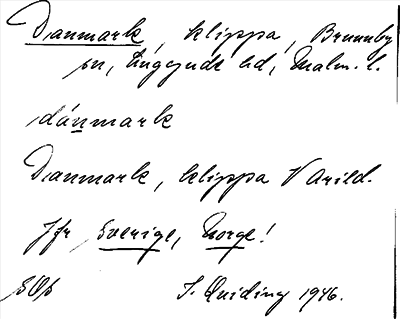 Danmark, klippa, Brunnby
sn, Luggude hd, Malm. l.
dánmark
Danmark, klippa V Arild.
Jfr Sverige, Norge!
SOs I. Quiding 1946.